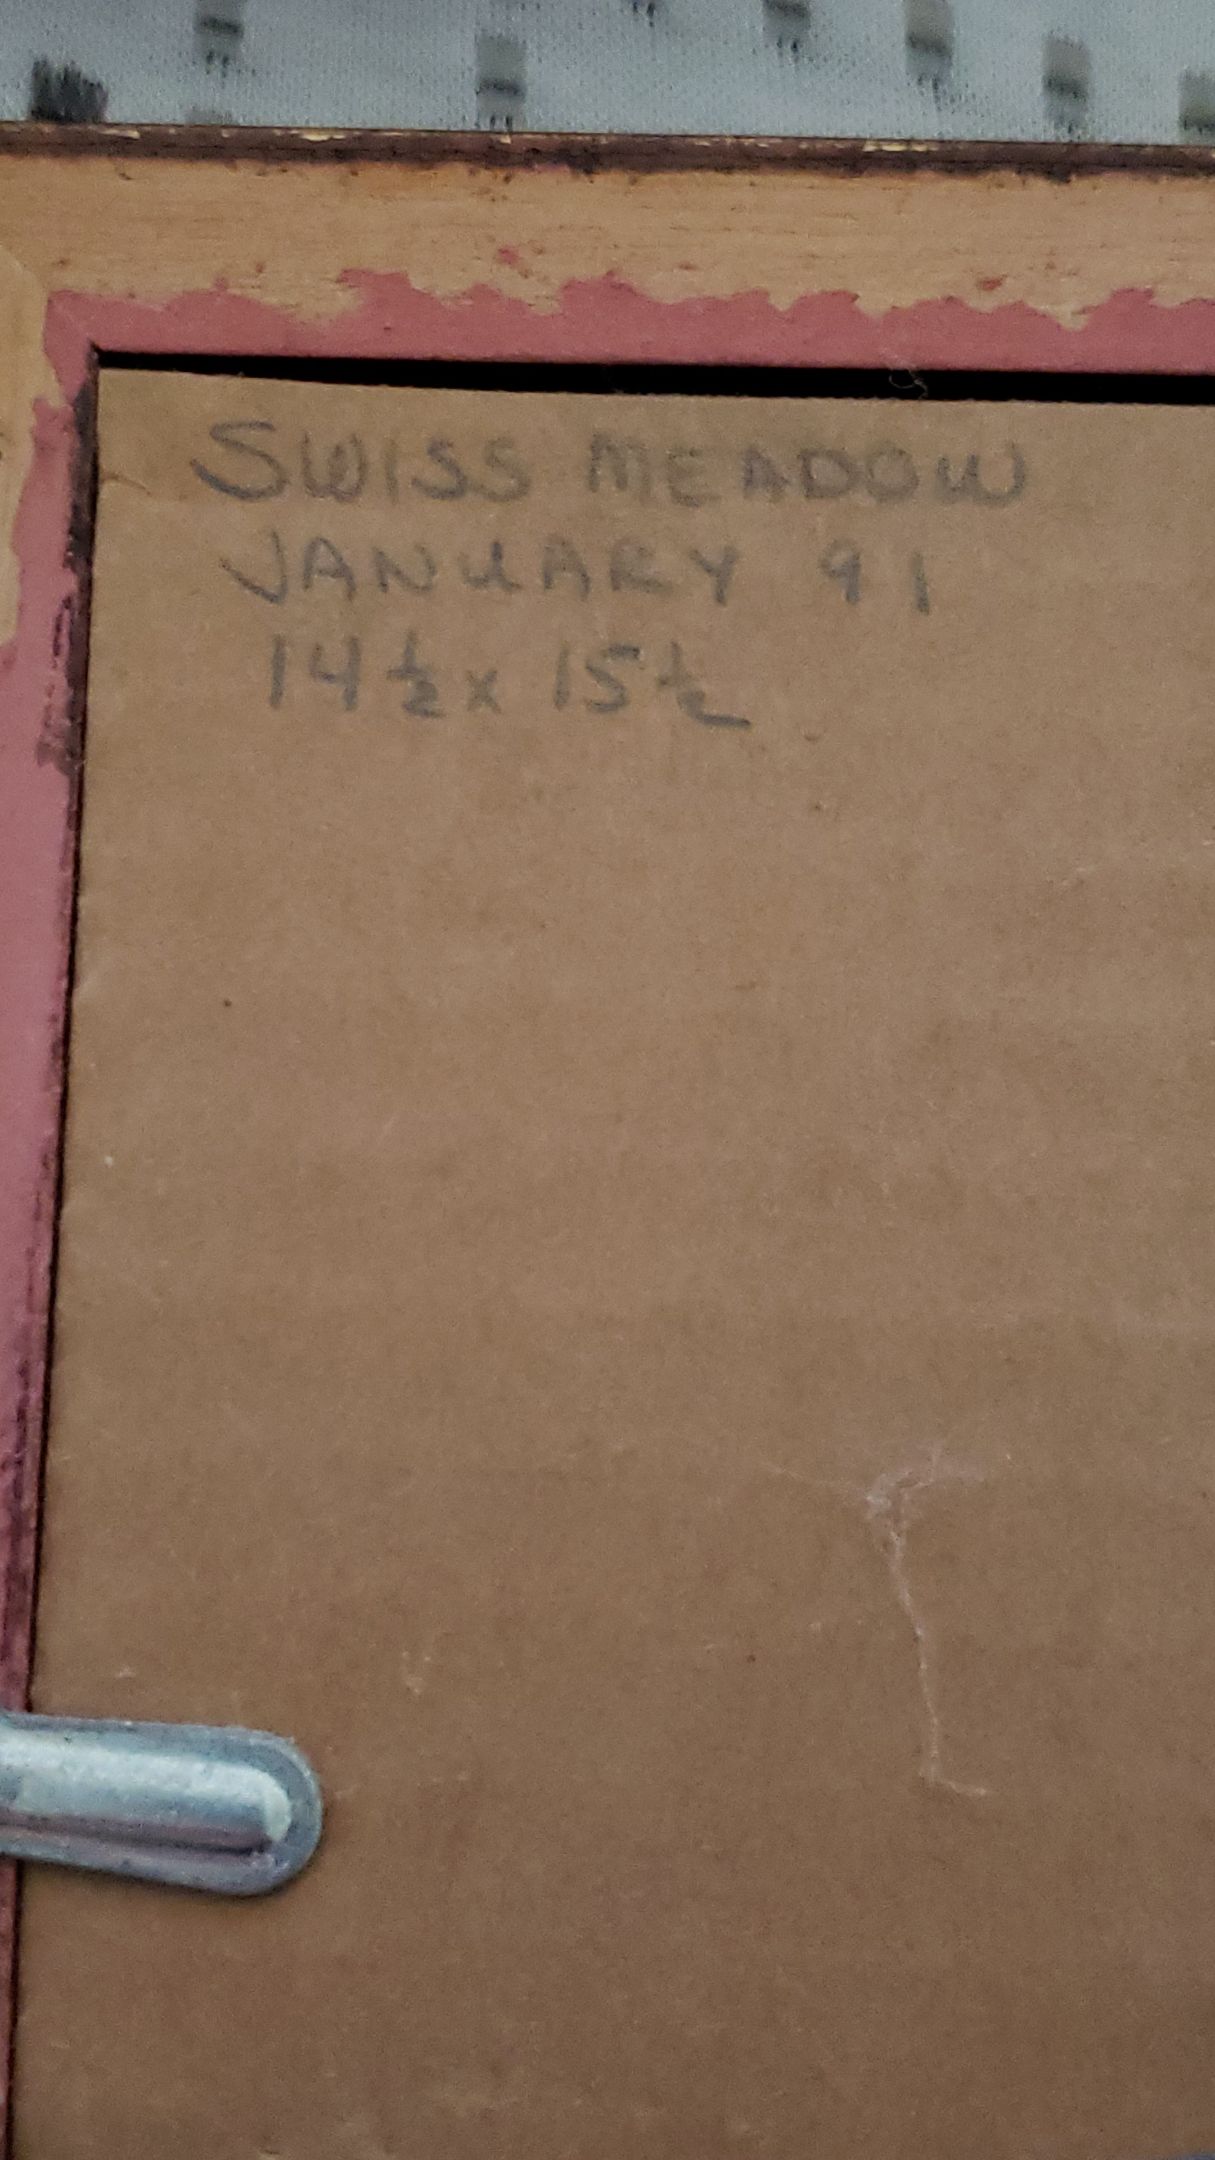 SWISS MEADOW
JANUARY 91
14 1/2 x 15 1/2